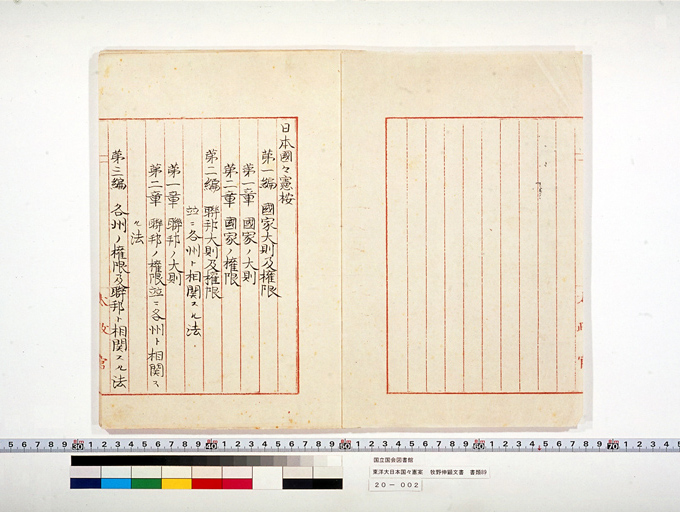 日本國々憲桉
第一編 國家大則及權限
第一章 國家ノ大則
第二章 國家ノ權限
第二編 聯邦大則及權限
並ニ各州ト相関スル法
第一章 聯邦ノ大則
第二章 聯邦ノ權限並ニ各州ト相関ス
ル法
第三編 各州ノ權限及聯邦ト相関スル法
太政官
国立国会図書館
東洋大日本国々憲案 牧野伸顕文書 書類の部
20－002